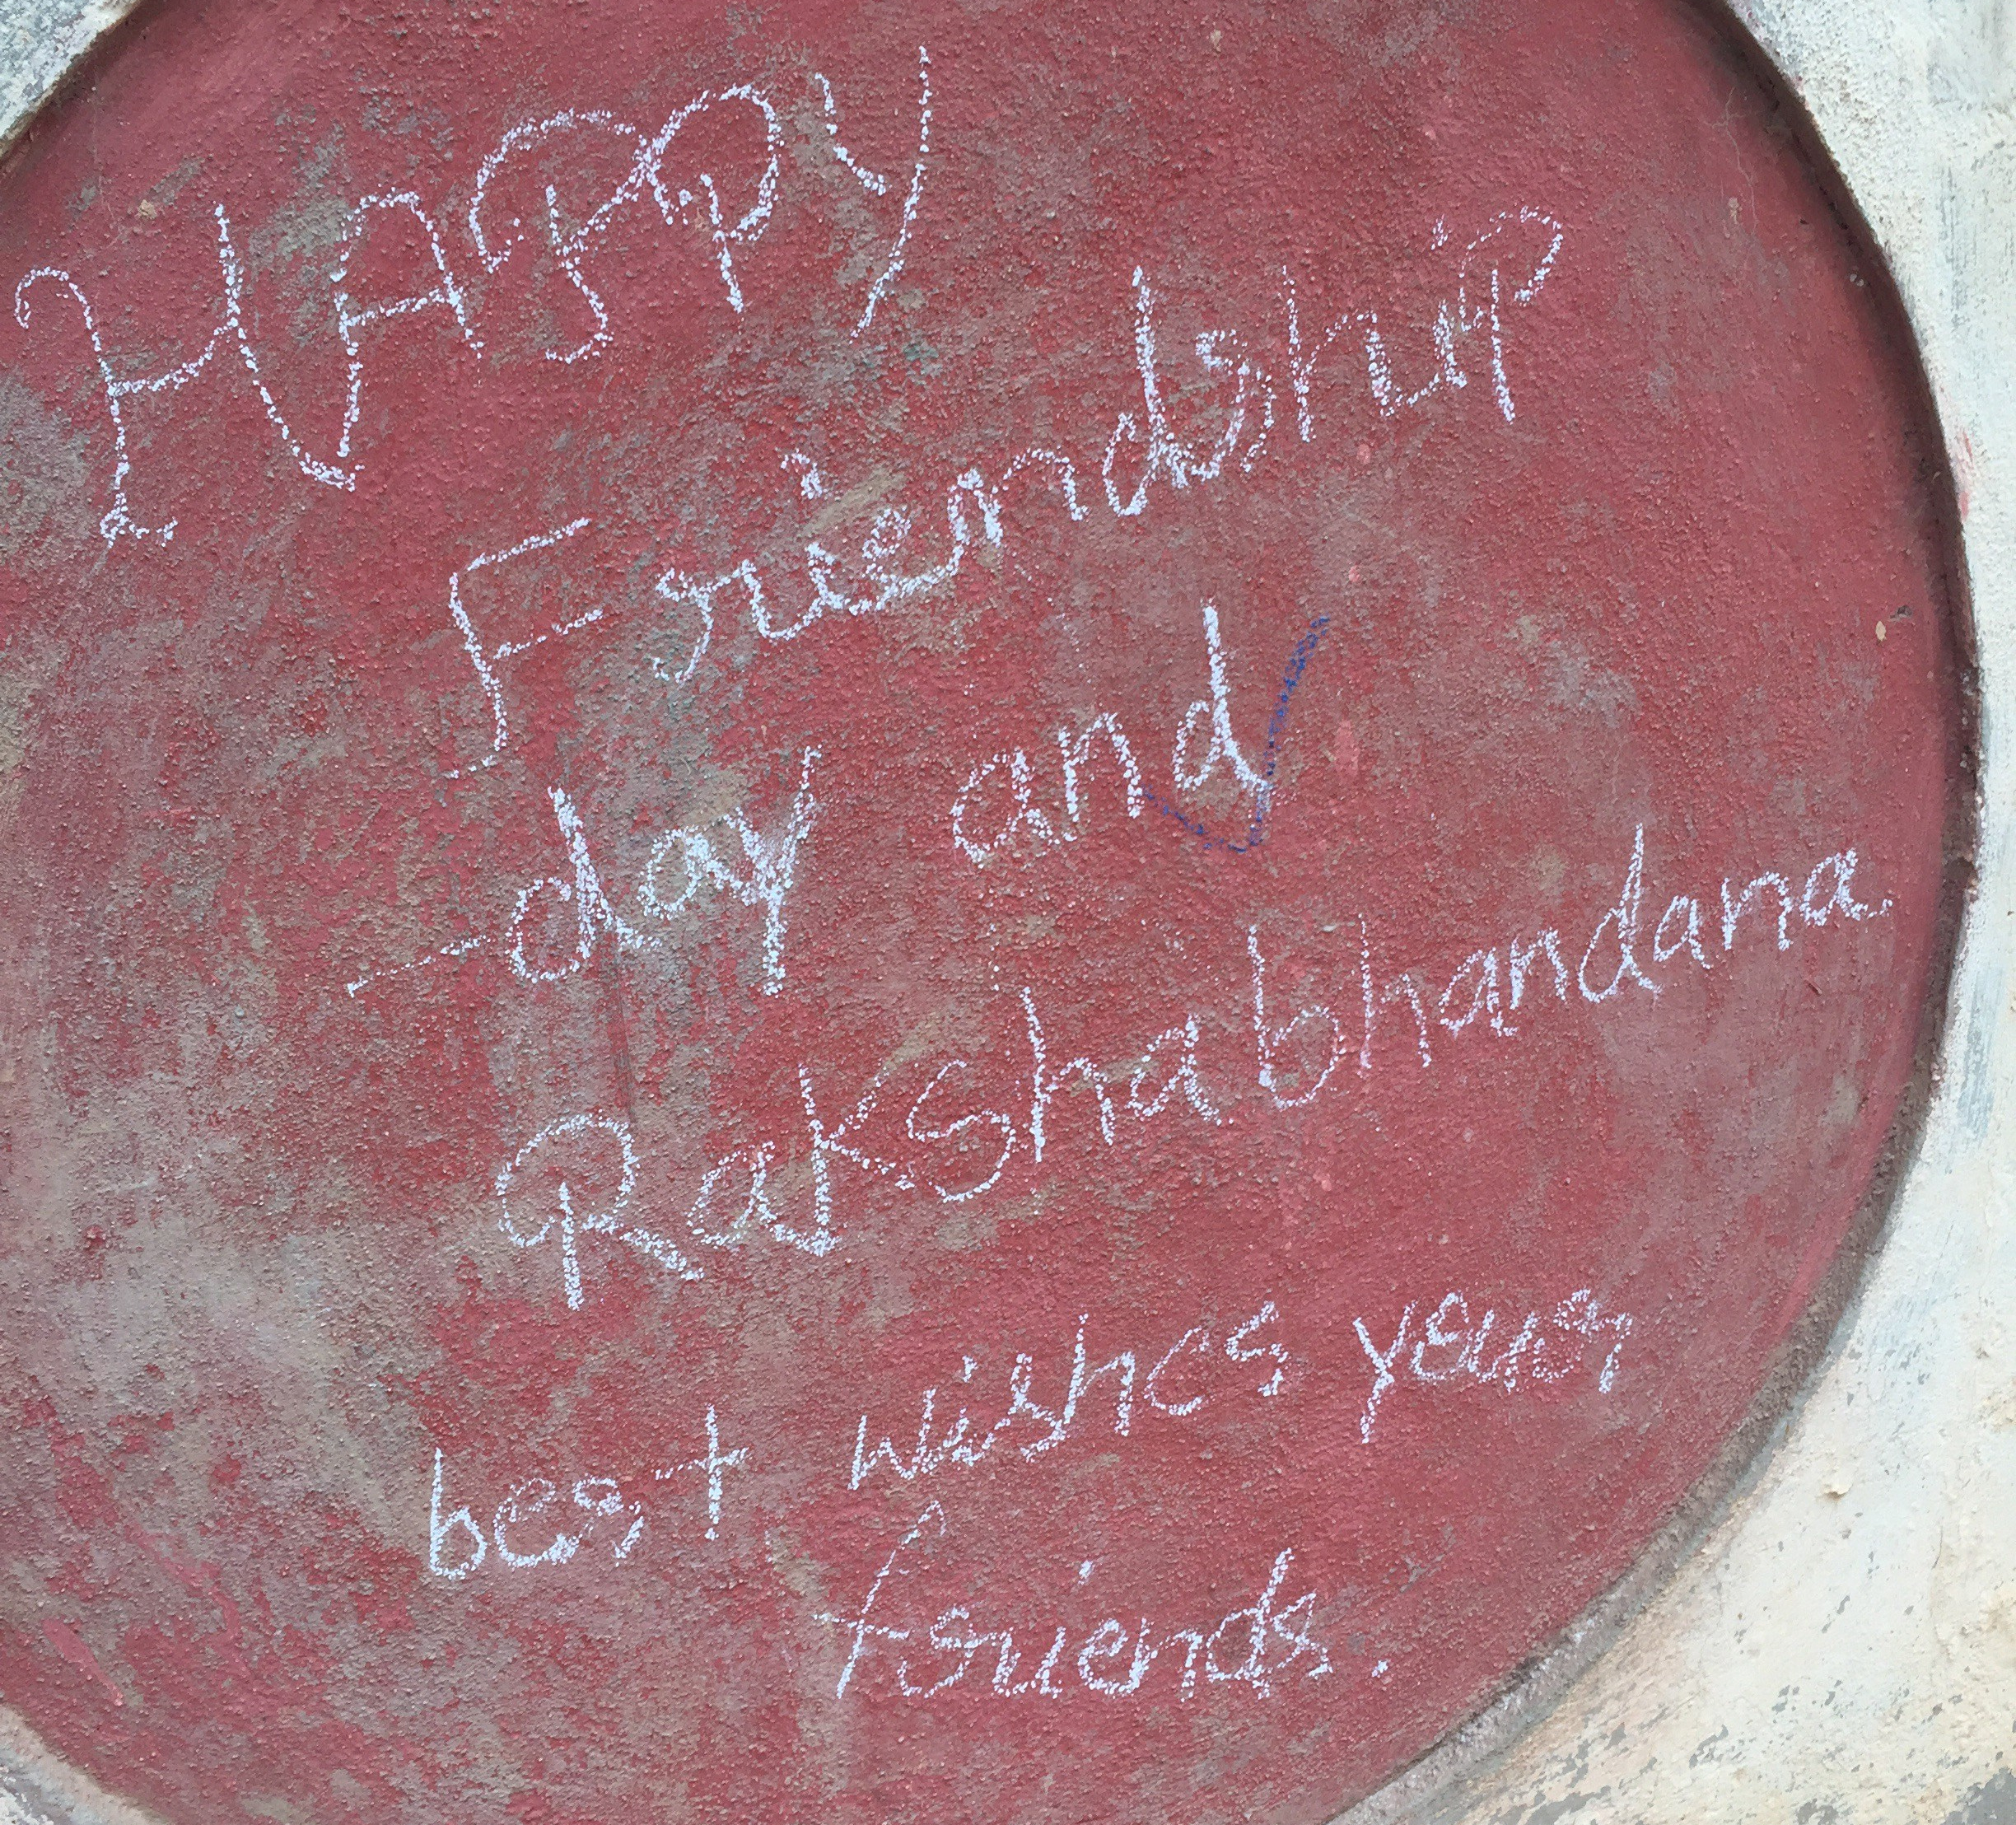 HAPPY
Friendship
-day and
Rakshabhandana
best wishes your
friends.